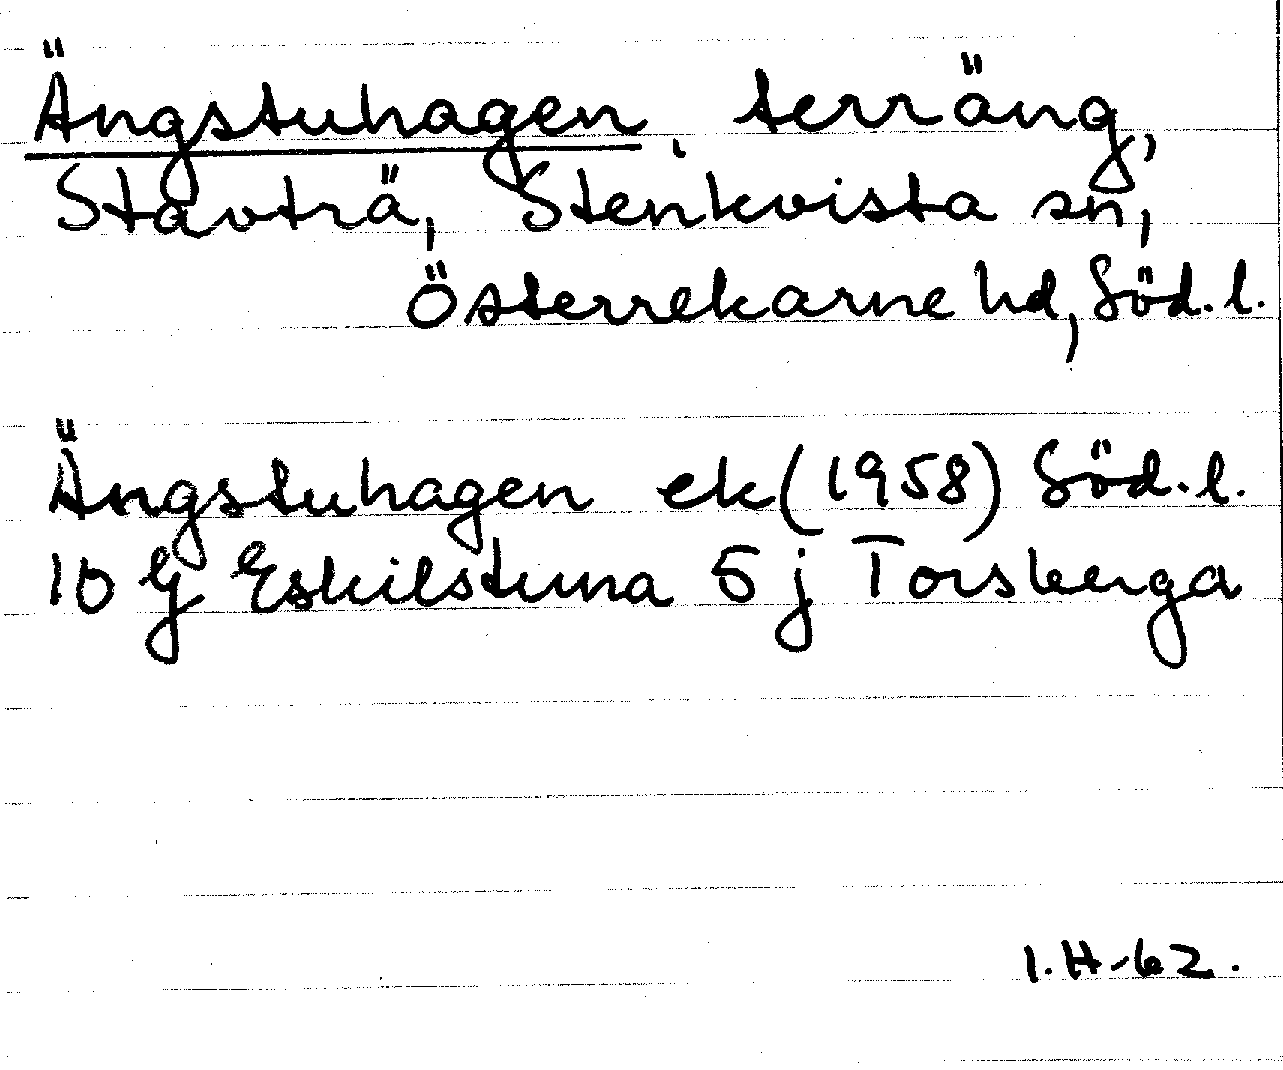 Ängstuhagen, terräng,
Stavträ, Stenkvista sn,
Österrekarne hd, Söd. l.
Ängstuhagen ek (1958) Söd. l.
10 G Eskilstuna 5 j Torsberga
I. H-62.